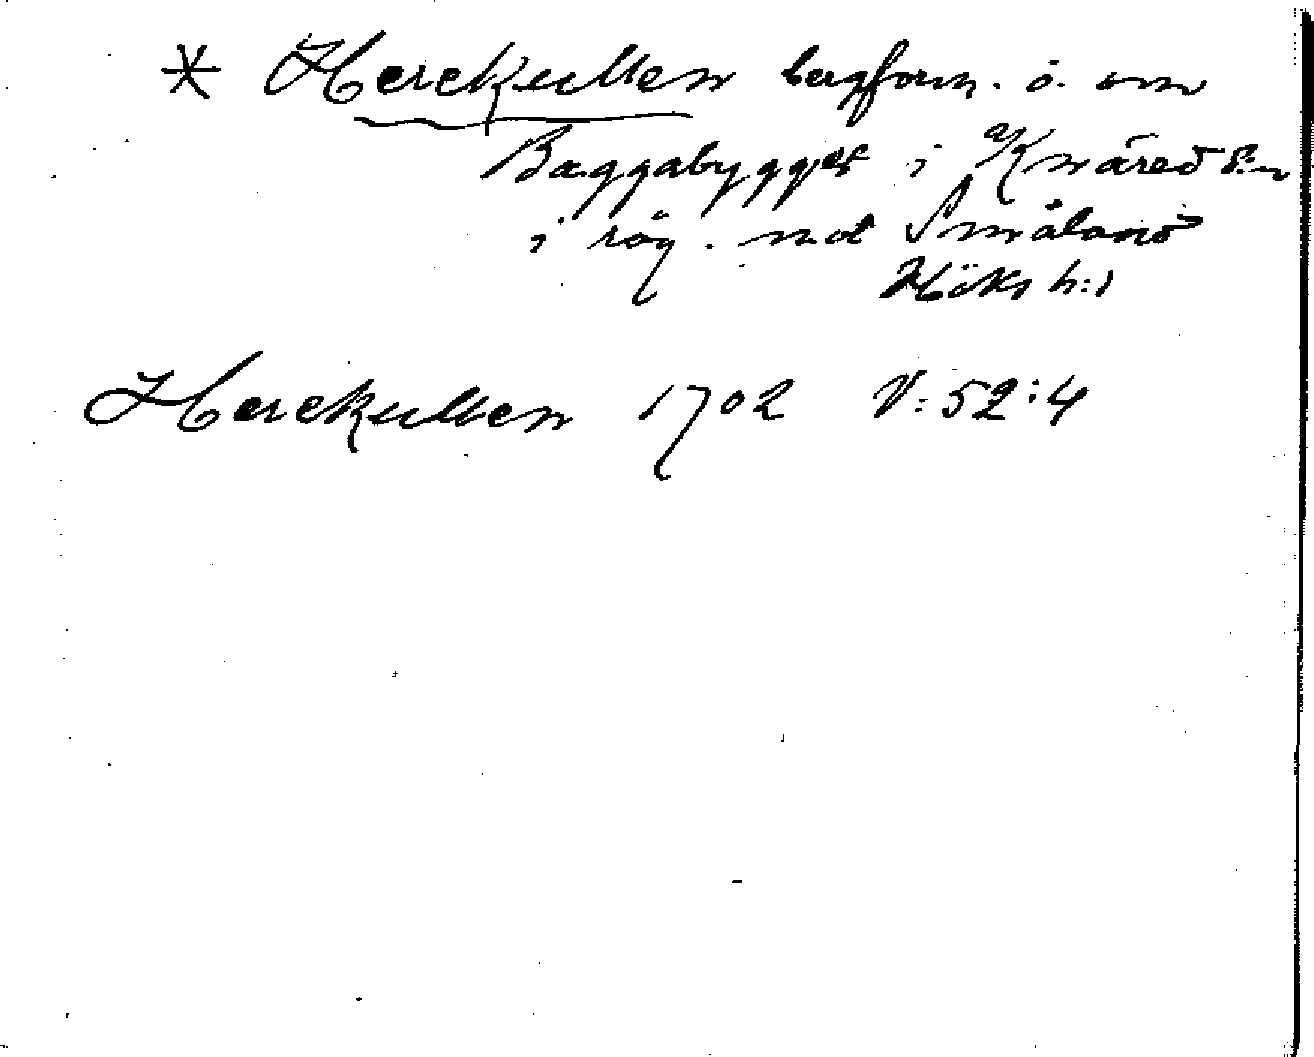 * Herckullen bergform. ö. om
Baggabygget i Knäred s:n
i råg. mot Småland
Höks h:d
Herckullen 1702 V:52:4